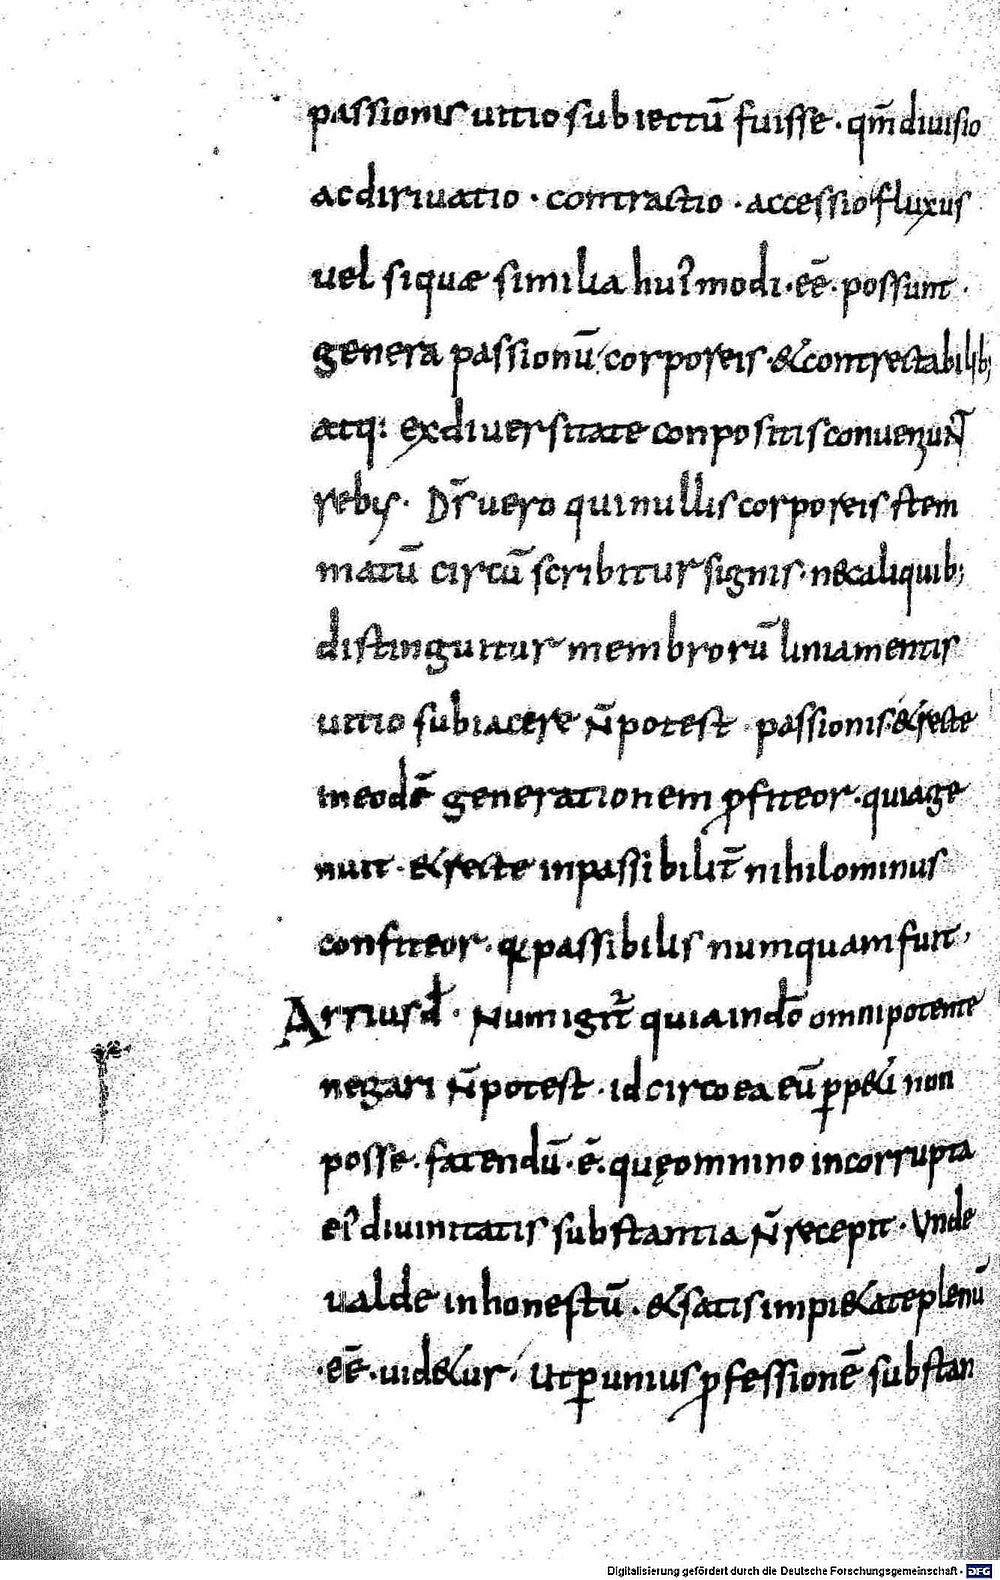 passionis uitio subiectū fuisse · qm̄ diuisio
ac diriuatio · contractio · accessio fluxus
uel si quae similia huiꝰmodi · eē · possunt ·
genera passionū corporeis · & contrectabilib;
atq: ex diuersitate conpositis conueniunt
rebus · Dr̄ uero qui nullis corporeis stem
matū circū scribitur signis · nec aliquib;
distinguitur membrorū liniamentis
uitio subiacere n̄ potest · passionis · & recte
in eo dē generationem ꝓfiteor · quia ge
nuit · & recte inpassibilit̄ nihilominus
confiteor · quia passibilis numquam fuit,
Arrius d̄ · Num igit̄ quia in dō omnipotente
negari n̄ potest · idcirco ea eū ꝑpeti non
posse · fatendū · ē · quę omnino incorrupta
eiꝰ diuinitatis substantia n̄ recepit · Unde
ualde inhonestū · & satis impi&ate plenū
· eē · uid&ur · Ut ꝑ unius ꝓfessionē substan
r
Digitalisierung gefördert durch die Deutsche Forschungsgemeinschaft · DFG